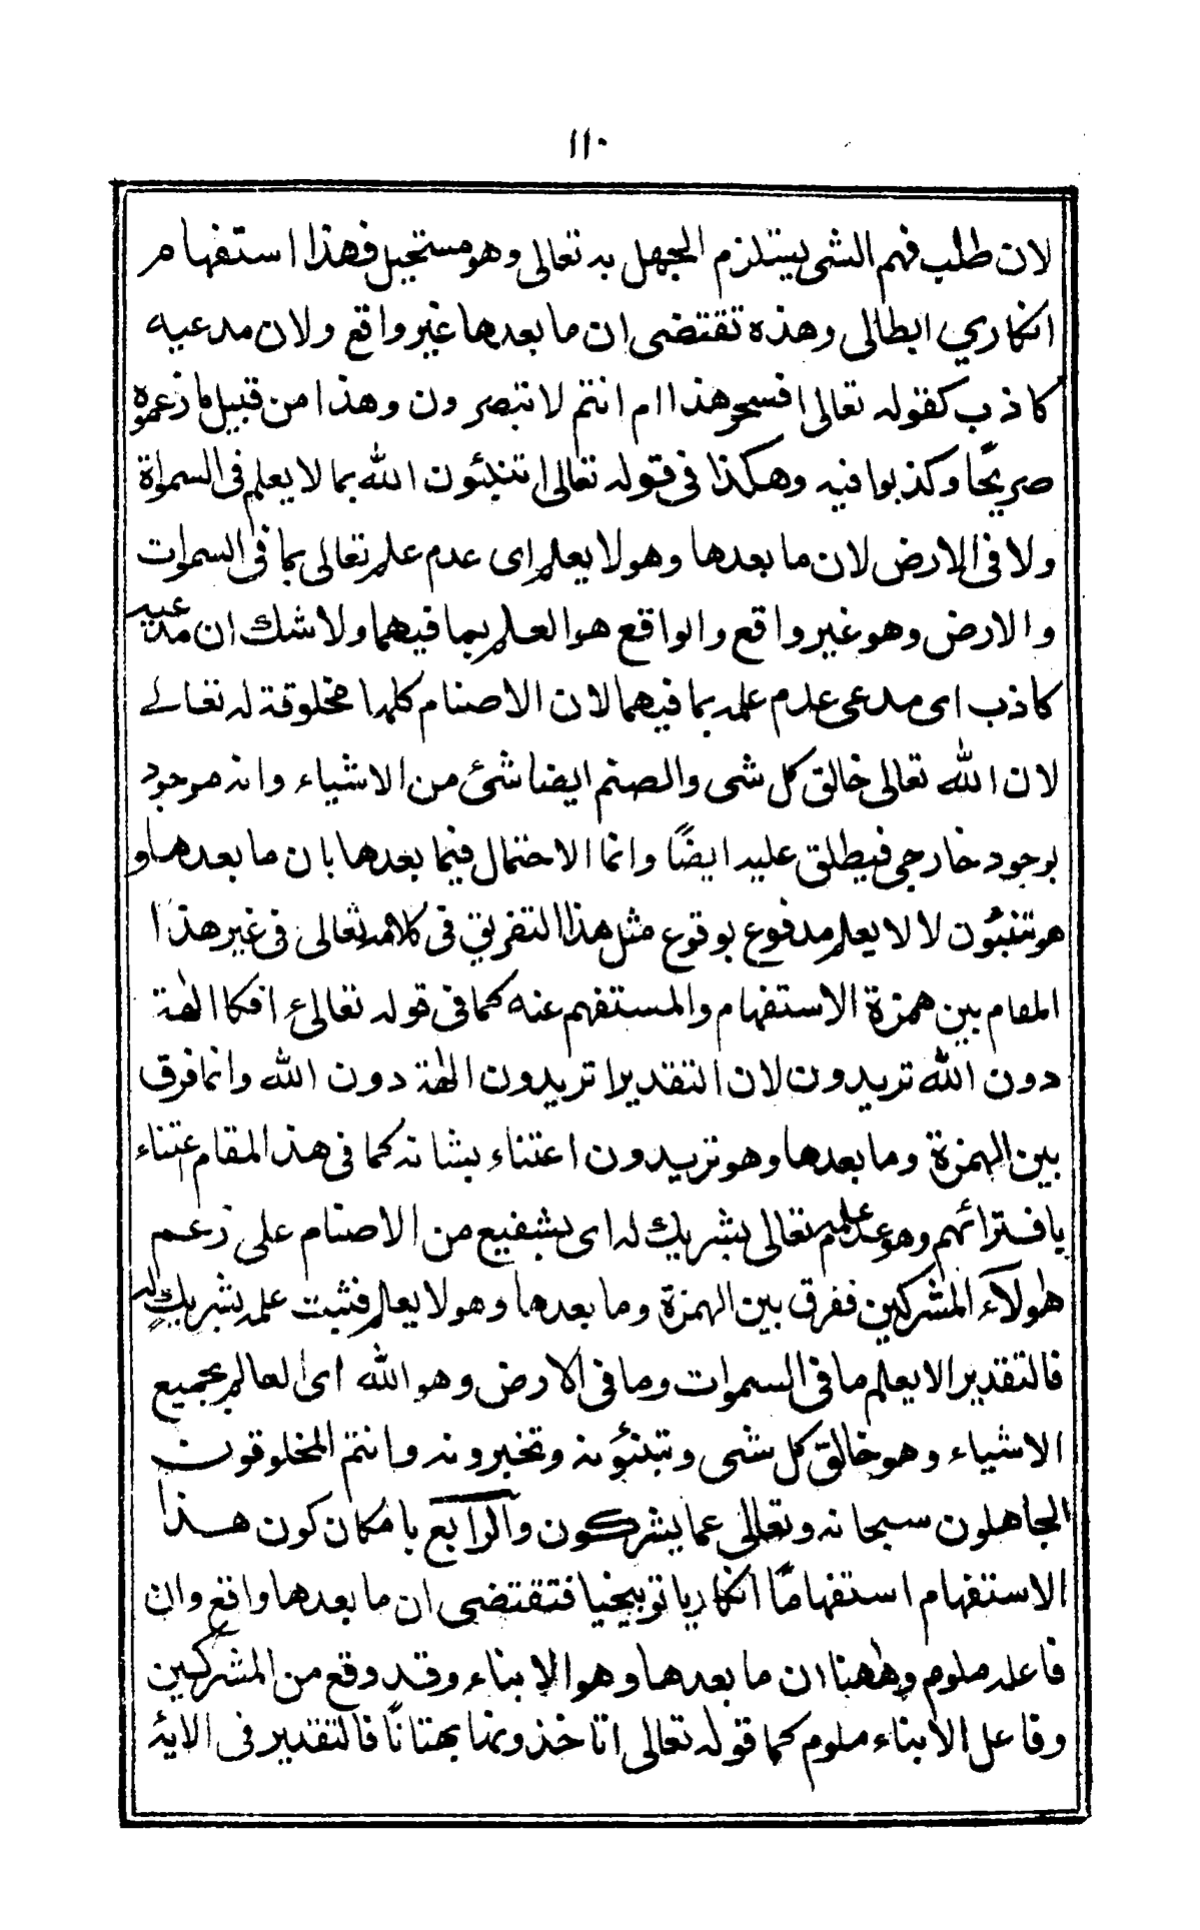 ١١٠
لان طلب فهم الشى يستلزم الجهل به تعالى وهو مستحيل فهذا استفهام
انكاري ابطالى وهذه تقتضى ان ما بعدها غير واقع ولان مدعيه
كاذب كقوله تعالى افسحر هذا ام انتم لا تبصرون وهذا من قبيل ما زعموه
صريحًا وكذبوا فيه وهكذا فى قوله تعالى اتنبئون الله بما لا يعلم فى السموات
ولا فى الارض لان ما بعدها وهو لا يعلم اى عدم علمه تعالى بما فى السموات
والارض وهو غير واقع والواقع هو العلم بما فيهما ولا شك ان مدعيه
كاذب اى مدعى عدم علمه بما فيهما لان الاصنام كلها مخلوقة له تعالے
لان الله تعالى خالق كل شى والصنم ايضا شئ من الاشياء وانه موجود
بوجود خارجى فيطلق عليه ايضًا وانما الاحتمال فيما بعدها بان ما بعدها و
هو تنبئون لا لا يعلم مدفوع بوقوع مثل هذا التفريق فى كلامه تعالى فى غير هذا
المقام بين همزة الاستفهام والمستفهم عنه كما فى قوله تعالى ءافكا الهة
دون الله تريدون لان التقدير اتريدون الهة دون الله وانما فرق
بين الهمزة وما بعدها وهو تريدون اعتناء بشانه كما فى هذ المقام اعتناء
بافترائهم وهو عدم علمه تعالى بشريك له اى بشفيع من الاصنام على زعم
هٰولآء المشركين ففرق بين الهمزة وما بعدها وهو لا يعلم فثبت علمه بشريك له
فالتقدير الا يعلم ما فى السموات وما فى الارض وهو الله اى العالم بجميع
الاشياء وهو خالق كل شى وتنبئونه وتخبرونه وانتم المخلوقون
الجاهلون سبحانه وتعالى عما يشركون والرابع بامكان كون هذا
الاستفهام استفهامًا انكاريا توبيخيا فتقتضى ان ما بعدها واقع وان
فاعله ملوم وهٰهنا ان ما بعدها وهو الابناء وقد وقع من المشركين
وفاعل الابناء ملوم كما قوله تعالى اتاخذونها بهتانًا فالتقدير فى الاية